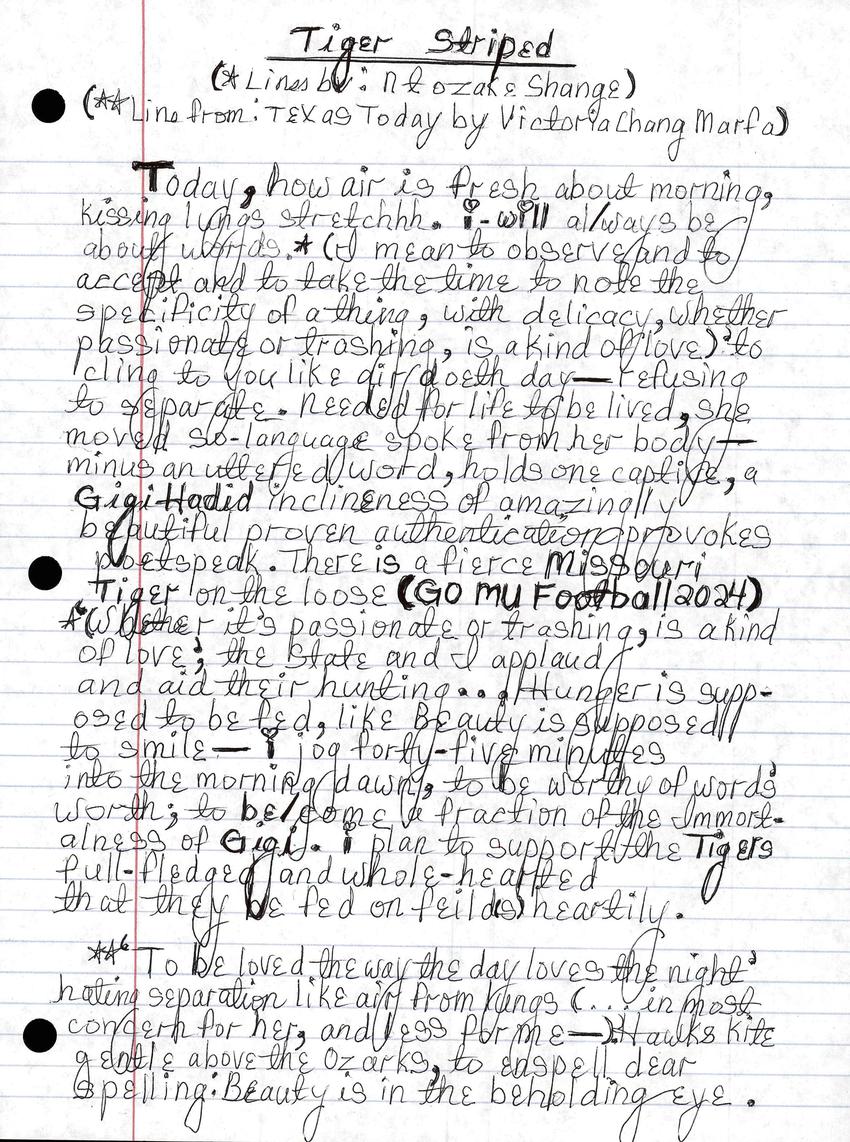 Tiger Striped
(* Lines by: Ntozake Shange)
(** Line from: TEXAS Today by Victoria Chang Marfa)
Today, how air is fresh about morning,
kissing lungs stretchhh. i-will al/ways be
about words.* (I mean to observe and to
accept and to take the time to note the
specificity of a thing, with delicacy, whether
passionate or trashing, is a kind of love)' to
cling to you like air/doeth day— refusing
to separate. Needed for life to be lived, she
moved so-language spoke from her body—
minus an uttered word, holds one captive, a
Gigi Hadid inclineness of amazingly
beautiful proven authentication provokes
poetspeak. There is a fierce Missouri
Tiger on the loose (GO MU Football 2024)
*'(Whether it's passionate or trashing, is a kind
of love; the State and I applaud
and aid their hunting... Hunger is supp-
osed to be fed, like Beauty is supposed
to smile— i jog forty-five minutes
into the morning/dawn, to be worthy of words
worth; to be/come a fraction of the Immort-
alness of Gigi. i plan to support the Tigers
full-fledged and whole-hearted
that they be fed on feild(s) heartily.
**' To be loved the way the day loves the night'
hating separation like air from lungs (....in most
concern for her, and less for me—): Hawks kite
gentle above the Ozarks, to enspell dear
spelling: Beauty is in the beholding eye.